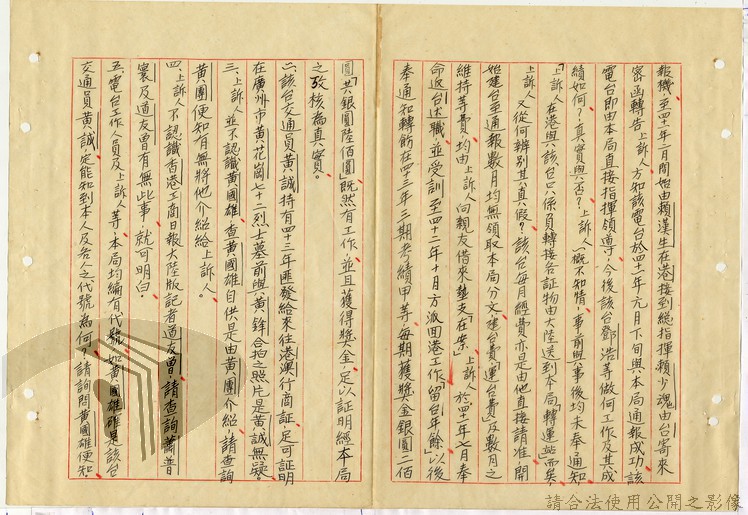 報機，至四十一年二月間始由賴漢生在港接到總指揮賴少魂由台寄來
密函轉告上訴人，方知該電台於四十一年元月下旬與本局通報成功，該
電台即由本局直接指揮領導，今後該台鄧浩等做何工作及其成
績如何？真實與否？上訴人「概不知情」，事前與事後均未奉通知
上訴人在港與該台只係員轉接各証物由大陸送到本局「轉運站」而矣，
上訴人又從何辨別其真假？該台每月經費亦是由他直接請准，開
始建台至通報數月均無領取本局分文「建台費」「運台費」及數月之
維持等費，均由上訴人向親友借來墊支「在案」上訴人於四十一年七月奉
命返台述職，並受訓至四十二年十月方派回港工作「留台年餘」以後
奉通知轉飭在四十三年三期考績甲等，每期獲獎金銀圓二佰
圓「共銀圓陸佰圓」既然有工作，並且獲得獎金，足以証明經本局
之攷核為真實。
二、該台交通員黃誠持有四十三年匪發給來往港澳行商証，足可証明
在廣州市黃花崗七十二烈士墓前與黃鋒合拍之照片是黃誠無疑。
三、上訴人並不認識黃國雄，查黃國雄自供是由黃團介紹，請查詢
黃團便知有無將他介紹給上訴人。
四、上訴人不認識香港工商日報大陸版記者道友曾，請查詢蕭普
寰及道友曾有無此事，就可明白。
五、電台工作人員及上訴人等，本局均編有代號，如黃國雄確是該台
交通員黃誠，定能知到本人及各人之代號為何？請詢問黃國雄便知。
請合法使用公開之影像